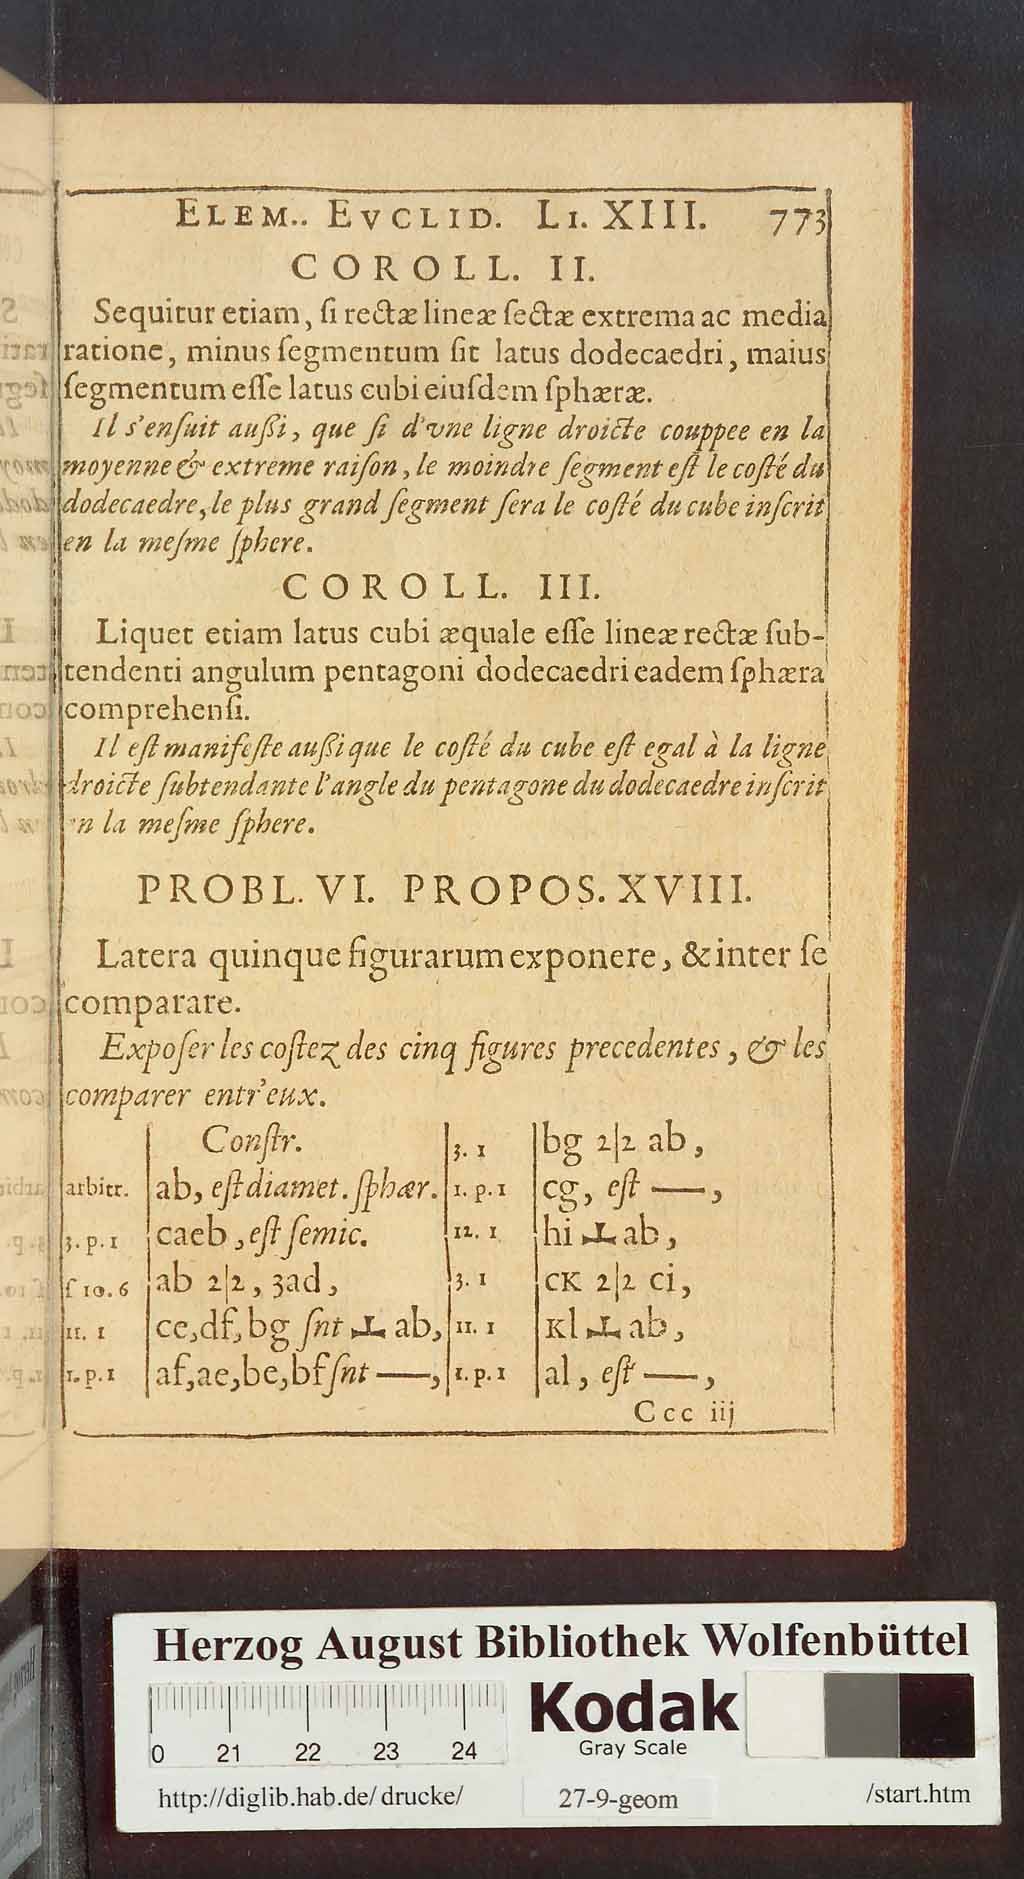 ELEM.. EVCLID. LI. XIII. 773
COROLL. II.
Sequitur etiam, ſi rectæ lineæ ſectæ extrema ac media
ratione, minus ſegmentum ſit latus dodecaedri, maius
ſegmentum eſſe latus cubi eiuſdem ſphæræ.
Il s'enſuit außi, que ſi d'vne ligne droicte couppee en la
moyenne & extreme raiſon, le moindre ſegment eſt le coſté du
dodecaedre, le plus grand ſegment ſera le coſté du cube inſcrit
en la meſme ſphere.
COROLL. III.
Liquet etiam latus cubi æquale eſſe lineæ rectæ ſub-
tendenti angulum pentagoni dodecaedri eadem ſphæra
comprehenſi.
Il eſt manifeſte außi que le coſté du cube eſt egal à la ligne
droicte ſubtendante l'angle du pentagone du dodecaedre inſcrit
en la meſme ſphere.
PROBL. VI. PROPOS. XVIII.
Latera quinque figurarum exponere, & inter ſe
comparare.
Expoſer les coſtez des cinq figures precedentes, & les
comparer entr'eux.
Conſtr.
arbitr. ab, eſt diamet. ſphær.
3. p. 1 caeb, eſt ſemic.
ſ 10. 6 ab 2|2, 3ad,
11. 1 ce, df, bg ſnt ⊥ ab,
1. p. 1 af, ae, be, bf ſnt —,
3. 1 bg 2|2 ab,
1. p. 1 cg, eſt —,
12. 1 hi ⊥ ab,
3. 1 cK 2|2 ci,
11. 1 Kl ⊥ ab,
1. p. 1 al, eſt —,
Ccc iij
Herzog August Bibliothek Wolfenbüttel
0 21 22 23 24
Kodak
Gray Scale
http://diglib.hab.de/drucke/ 27-9-geom /start.htm